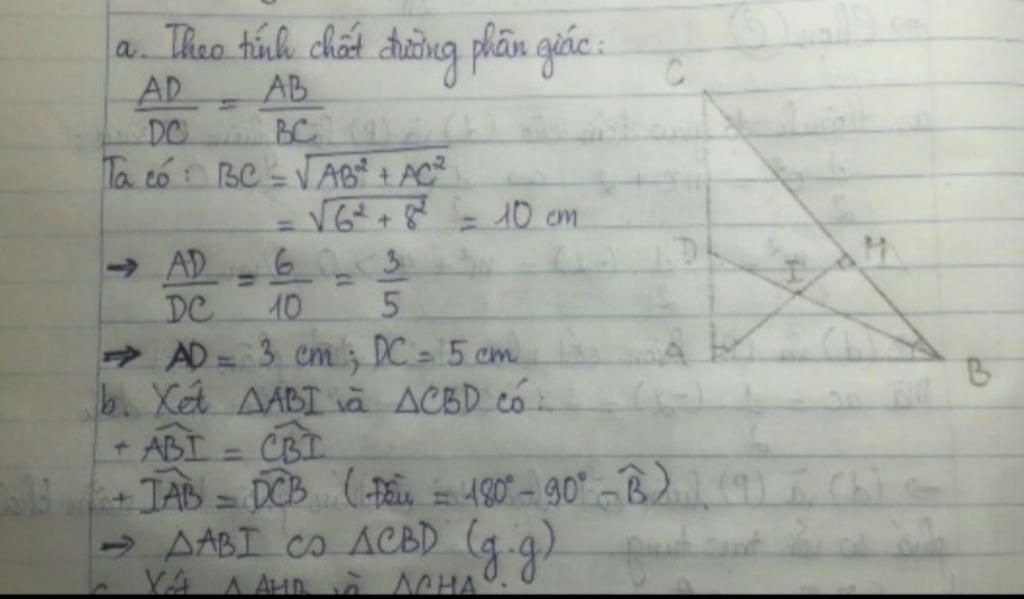 a. Theo tính chất đường phân giác:
AD/DC = AB/BC
Ta có: BC = √(AB² + AC²)
= √(6² + 8²) = 10 cm
→ AD/DC = 6/10 = 3/5
⇒ AD = 3 cm; DC = 5 cm
b. Xét ΔABI và ΔCBD có:
+ ABI^ = CBI^
+ IAB^ = DCB^ (Đều = 180° - 90° - B^)
⇒ ΔABI ∽ ΔCBD (g.g)
c. Xét ΔAHB và ΔCHA:
C
D
I
H
A
B